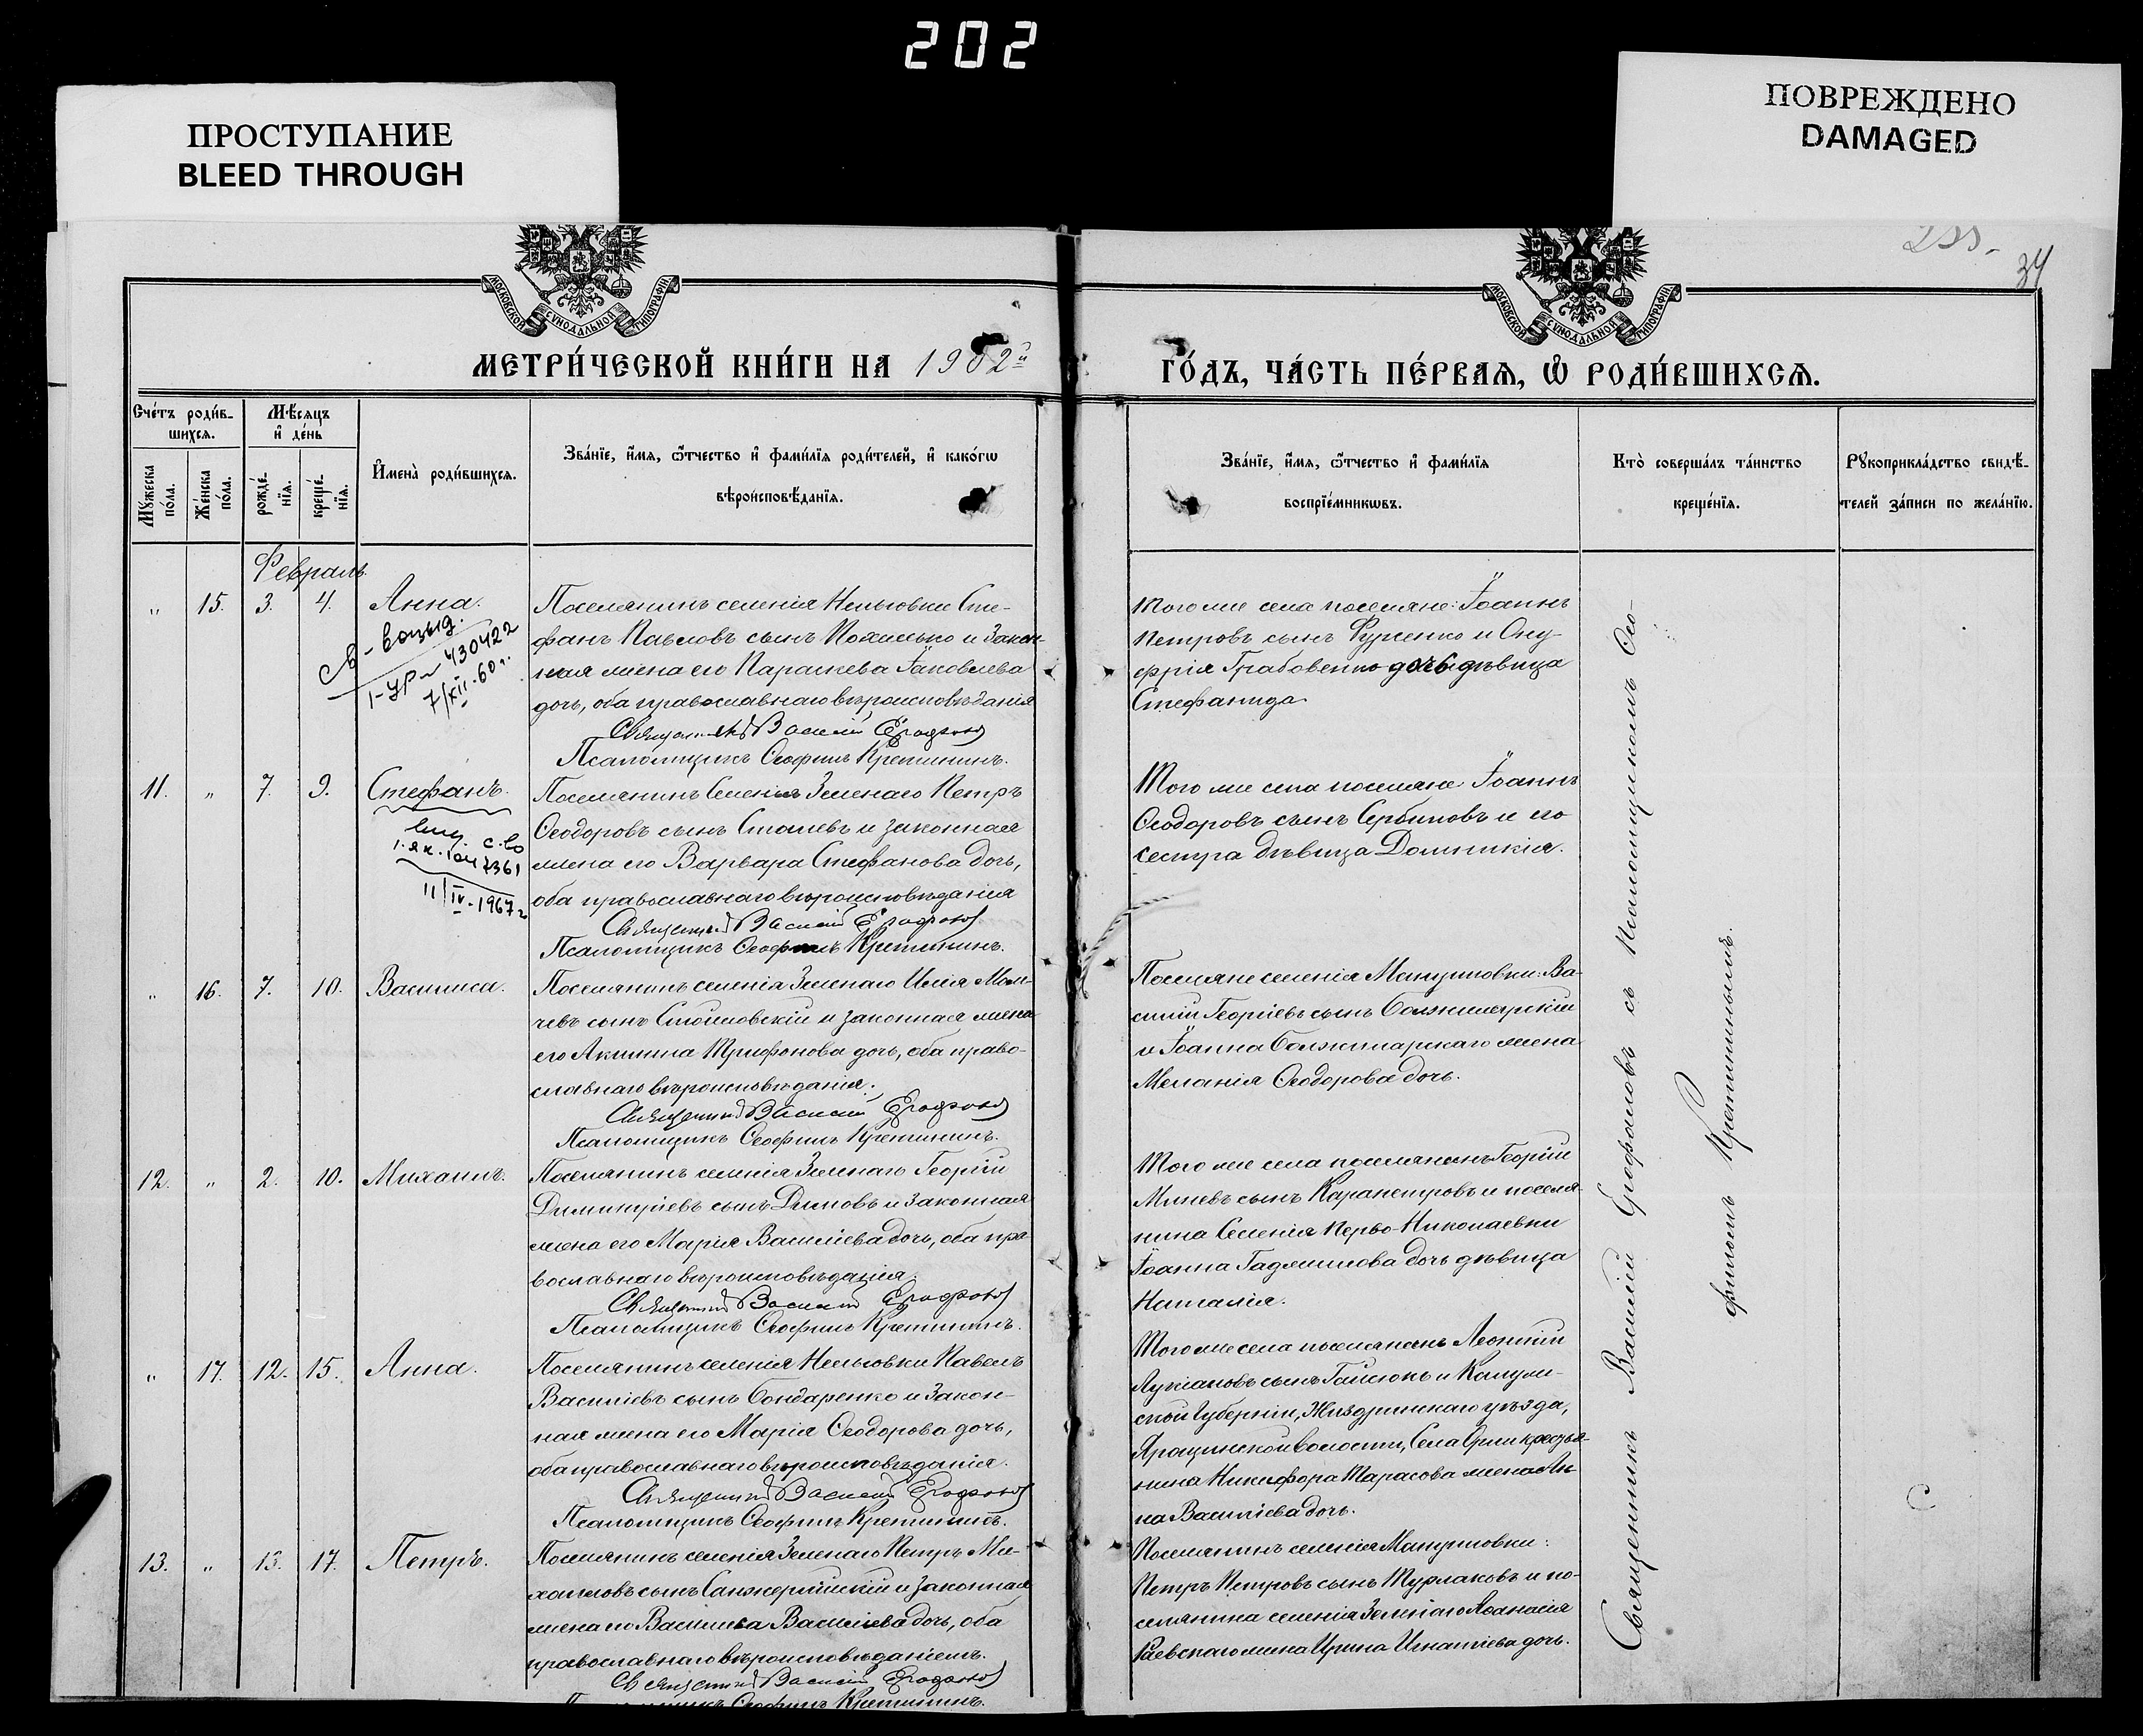 202
ПРОСТУПАНИЕ
BLEED THROUGH
ПОВРЕЖДЕНО
DAMAGED
34
МОСКОВСКОЙ СѴНОДАЛЬНОЙ ТИПОГРАФІИ
МОСКОВСКОЙ СѴНОДАЛЬНОЙ ТИПОГРАФІИ
МЕТРИ́ЧЕСКОЙ КНИ́ГИ НА 1902й
ГО́ДЪ, ЧА́СТЬ ПЕ́РВАЯ, Ѽ РОДИ́ВШИХСЯ.
Сче́тъ роди́в-
шихся.
Мѣ́сяцъ
и҆ де́нь
Мꙋ́жеска по́ла.
Же́нска по́ла.
рожде́-
нїя.
креще́-
нїя.
И҆мена̀ роди́вшихся.
Зва́нїе, и҆́мя, ѻ҆́тчество и҆ фами́лїя роди́телей, и҆ како́гѡ
вѣроисповѣ́данїя.
Зва́нїе, и҆́мя, ѻ҆́тчество и҆ фами́лїя
воспрїе́мникѡвъ.
Кто̀ соверша́лъ та́инство
креще́нїя.
Рꙋкоприкла́дство свидѣ́-
телей за́писи по жела́нїю.
Февраль.
" 15. 3. 4. Анна.
7/XII-60г.
Поселянинъ селенія Нельговки Сте-
фанъ Павловъ сынъ и Закон-
ная жена его Параскева Іаковлева
дочь, оба православнаго вѣроисповѣданія
Священникъ Василій Ерофаловъ
Псаломщикъ Ѳеофилъ Кретининъ.
Того же села поселяне: Іоаннъ
Петровъ сынъ Руженко и Ону-
фрія Грабовенко дочь дѣвица
Стефанида
11. " 7. 9. Стефанъ.
11/IV-1967г
Поселянинъ Селенія Зеленаго Петръ
Ѳеодоровъ сынъ и законная
жена его Варвара Стефанова дочь,
оба православнаго вѣроисповѣданія
Священникъ Василій Ерофаловъ
Псаломщикъ Ѳеофилъ Кретининъ.
Того же села поселяне Іоаннъ
Ѳеодоровъ сынъ Сербиновъ и его
сестра дѣвица Домникія.
" 16. 7. 10. Василиса.
Поселянинъ селенія Зеленаго Илія
сынъ Стойловскій и законная жена
его Акилина Трифонова дочь, оба право-
славнаго вѣроисповѣданія.
Священникъ Василій Ерофаловъ
Псаломщикъ Ѳеофилъ Кретининъ.
Поселяне селенія Мануиловки: Ва-
силій Георгіевъ сынъ Болжеларскій
и Іоанна Болжиларскаго жена
Меланія Ѳеодорова дочь.
12. " 2. 10. Михаилъ.
Поселянинъ селенія Зеленаго Георгій
Димитріевъ сынъ Димовъ и Законная
жена его Марія Василіева дочь, оба пра
вославнаго вѣроисповѣданія.
Священникъ Василій Ерофаловъ
Псаломщикъ Ѳеофилъ Кретининъ.
Того же села поселянинъ Георгій
Минчевъ сынъ Карапетровъ и поселя-
нина Селенія Перво-Николаевки
Іоанна Гаджилова дочь дѣвица
Наталія.
" 17. 12. 15. Анна.
Поселянинъ селенія Нельговки Павелъ
Василіевъ сынъ Бондаренко и Закон-
ная жена его Марія Ѳеодорова дочь,
оба православнаго вѣроисповѣданія.
Священникъ Василій Ерофаловъ
Псаломщикъ Ѳеофилъ Кретининъ.
Того же села поселянинъ Леонтій
Лукіановъ сынъ Гайсюкъ и Калуж-
ской Губерніи, Жиздринскаго уѣзда,
волости, Села крестья-
нина Никифора Тарасова жена Ан-
на Василіева дочь.
13. " 13. 17. Петръ.
Поселянинъ селенія Зеленаго Петръ Ми-
хаиловъ сынъ и законная
жена его Василиса Василіева дочь, оба
православнаго вѣроисповѣданіемъ.
Священникъ Василій Ерофаловъ
Псаломщикъ Ѳеофилъ Кретининъ.
Поселянинъ селенія Мануиловки:
Петръ Петровъ сынъ Турлаковъ и по-
селянина селенія Зеленаго Аѳанасія
Раевскаго жена Ирина Игнатіева дочь.
Священникъ Василій Ерофаловъ съ Псаломщикомъ Ѳео-
филомъ Кретининымъ.